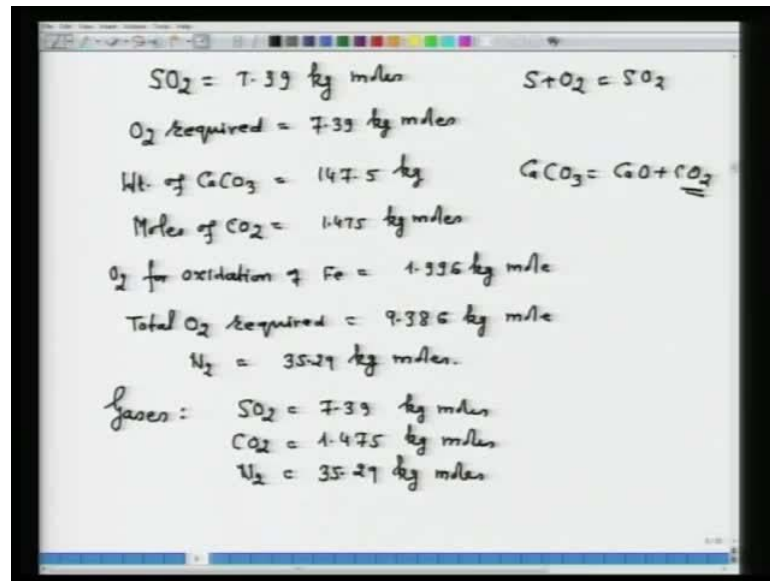 SO2 = 7.39 kg moles S+O2 = SO2
O2 required = 7.39 kg moles
Wt. of CaCO3 = 147.5 kg CaCO3 = CaO + CO2
Moles of CO2 = 1.475 kg moles
O2 for oxidation of Fe = 1.996 kg mole
Total O2 required = 9.386 kg mole
N2 = 35.29 kg moles.
Gases: SO2 = 7.39 kg moles
CO2 = 1.475 kg moles
N2 = 35.29 kg moles